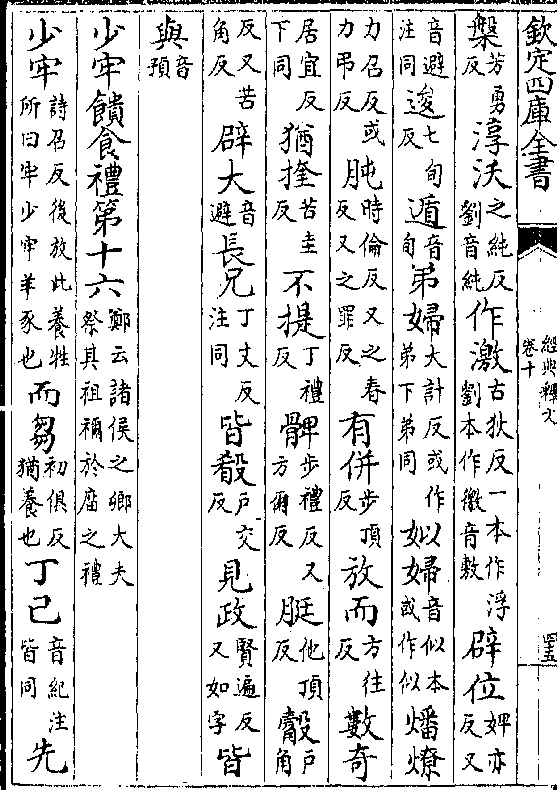 欽定四庫全書 經典釋文 卷十
槃芳勇反淳沃之純反劉音純作激古狄反一本作浮劉本作徼音敫辟位婢亦反又
音避注同逡七旬反遁音旬弟婦大計反或作弟下弟同姒婦音似本或作似燔燎
力召反或力弔反肫時倫反又之春反又之罪反有併步頂反放而方往反數奇
居宜反下同猶苦圭反不提丁禮反髀步禮反又方爾反脡他頂反觳戶角
反又苦角反辟大音避長兄丁丈反注同皆殽戶交反見政賢遍反又如字皆
與音預
少牢饋食禮第十六鄭云諸侯之卿大夫祭其祖禰於庿之禮
少牢詩召反後放此養牲所曰牢少牢羊豕也而芻初俱反猶養也丁己音紀注皆同先